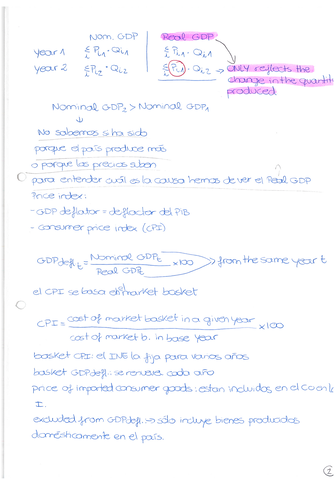 Nom. GDP Real GDP
year 1 Σi Pi,1 · Qi,1 Σi Pi,1 · Qi,1
year 2 Σi Pi,2 · Qi,2 Σi Pi,1 · Qi,2 → ONLY reflects the
change in the quantiti
produced
Nominal GDP2 > Nominal GDP1
↓
No sabemos si ha sido
porque el país produce más
o porque los precios suben
para entender cuál es la causa hemos de ver el Real GDP
Price index:
- GDP deflator = deflactor del PIB
- consumer price index (CPI)
GDPdeflt = Nominal GDPt / Real GDPt x100 → from the same year t
el CPI se basa en market basket
CPI = cost of market basket in a given year / cost of market b. in base year x100
basket CPI: el INE la fija para varios años
basket GDPdefl.: se renueva cada año
price of imported consumer goods: están incluidos en el
I.
excluded from GDPdefl. → sólo incluye bienes producidos
domésticamente en el país.